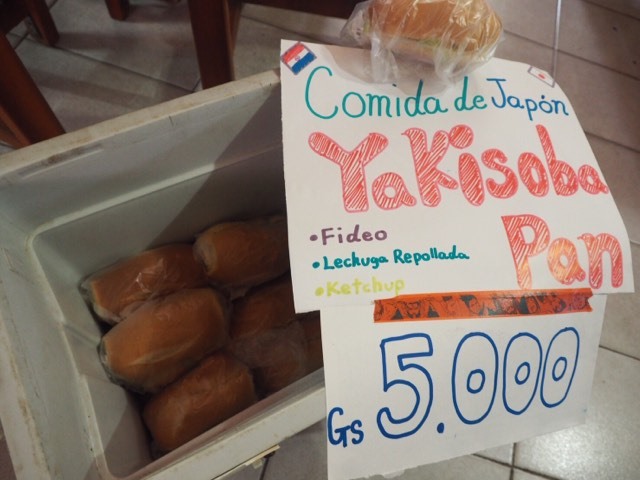 Comida de Japón
Yakisoba
Pan
•Fideo
•Lechuga Repollada
•Ketchup
Gs 5.000